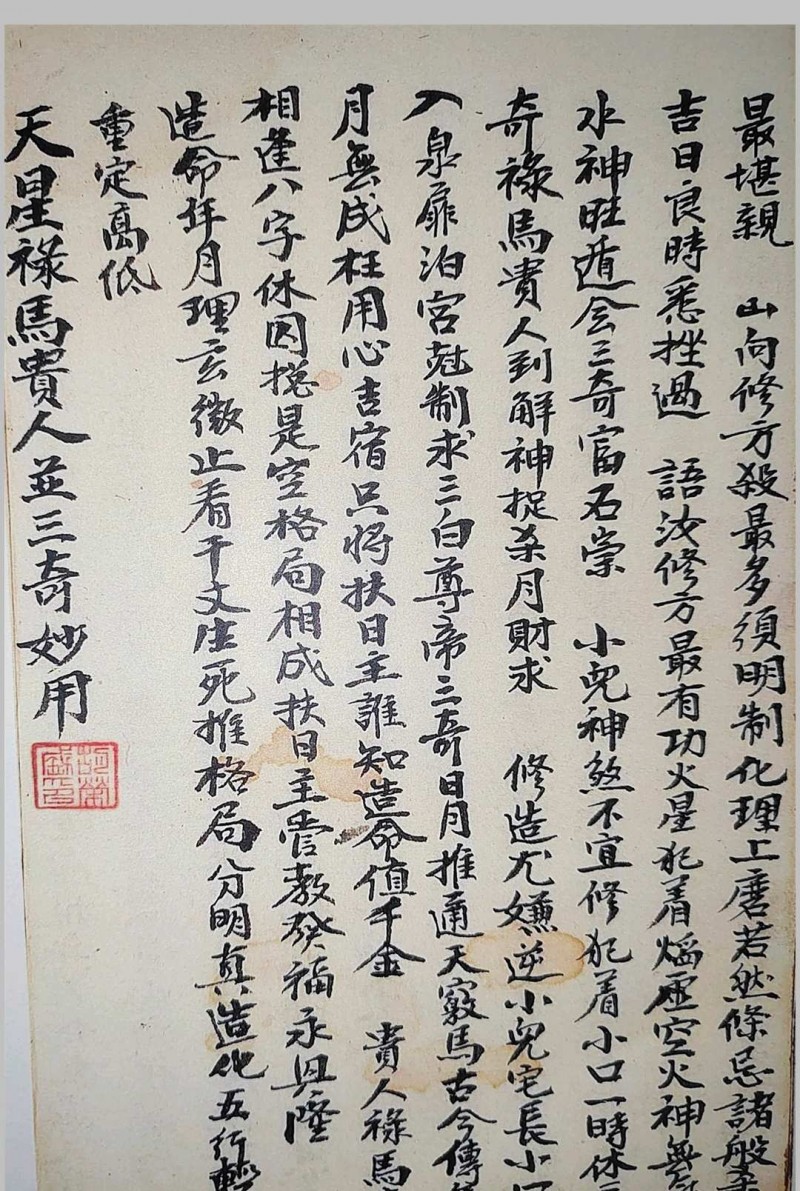 最堪親　山向修方殺最多須明制化理上磨若然條忌諸般
吉日良時悉挫過　語汝修方最有功火星犯着焰虛空火神無
水神旺遁会三奇富石崇　小兒神煞不宜修犯着小口一時休
奇祿馬貴人到解神捉杀月財求　修造尤嫌逆小兒宅長小口
入泉扉泊宮尅制求三白尊帝三奇日月推通天竅馬古今傳
月無成枉用心吉宿只將扶日主誰知造命值千金　貴人祿馬
相逢八字休囚搃是空格局相成扶日主管教發福永興隆
造命年月理玄微止看干支生死推格局分明真造化五行輕
重定高低
天星祿馬貴人並三奇妙用